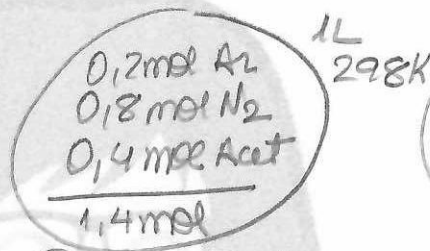 0,2mol Ar
0,8mol N2
0,4mol Acet
1,4mol
1L
298K